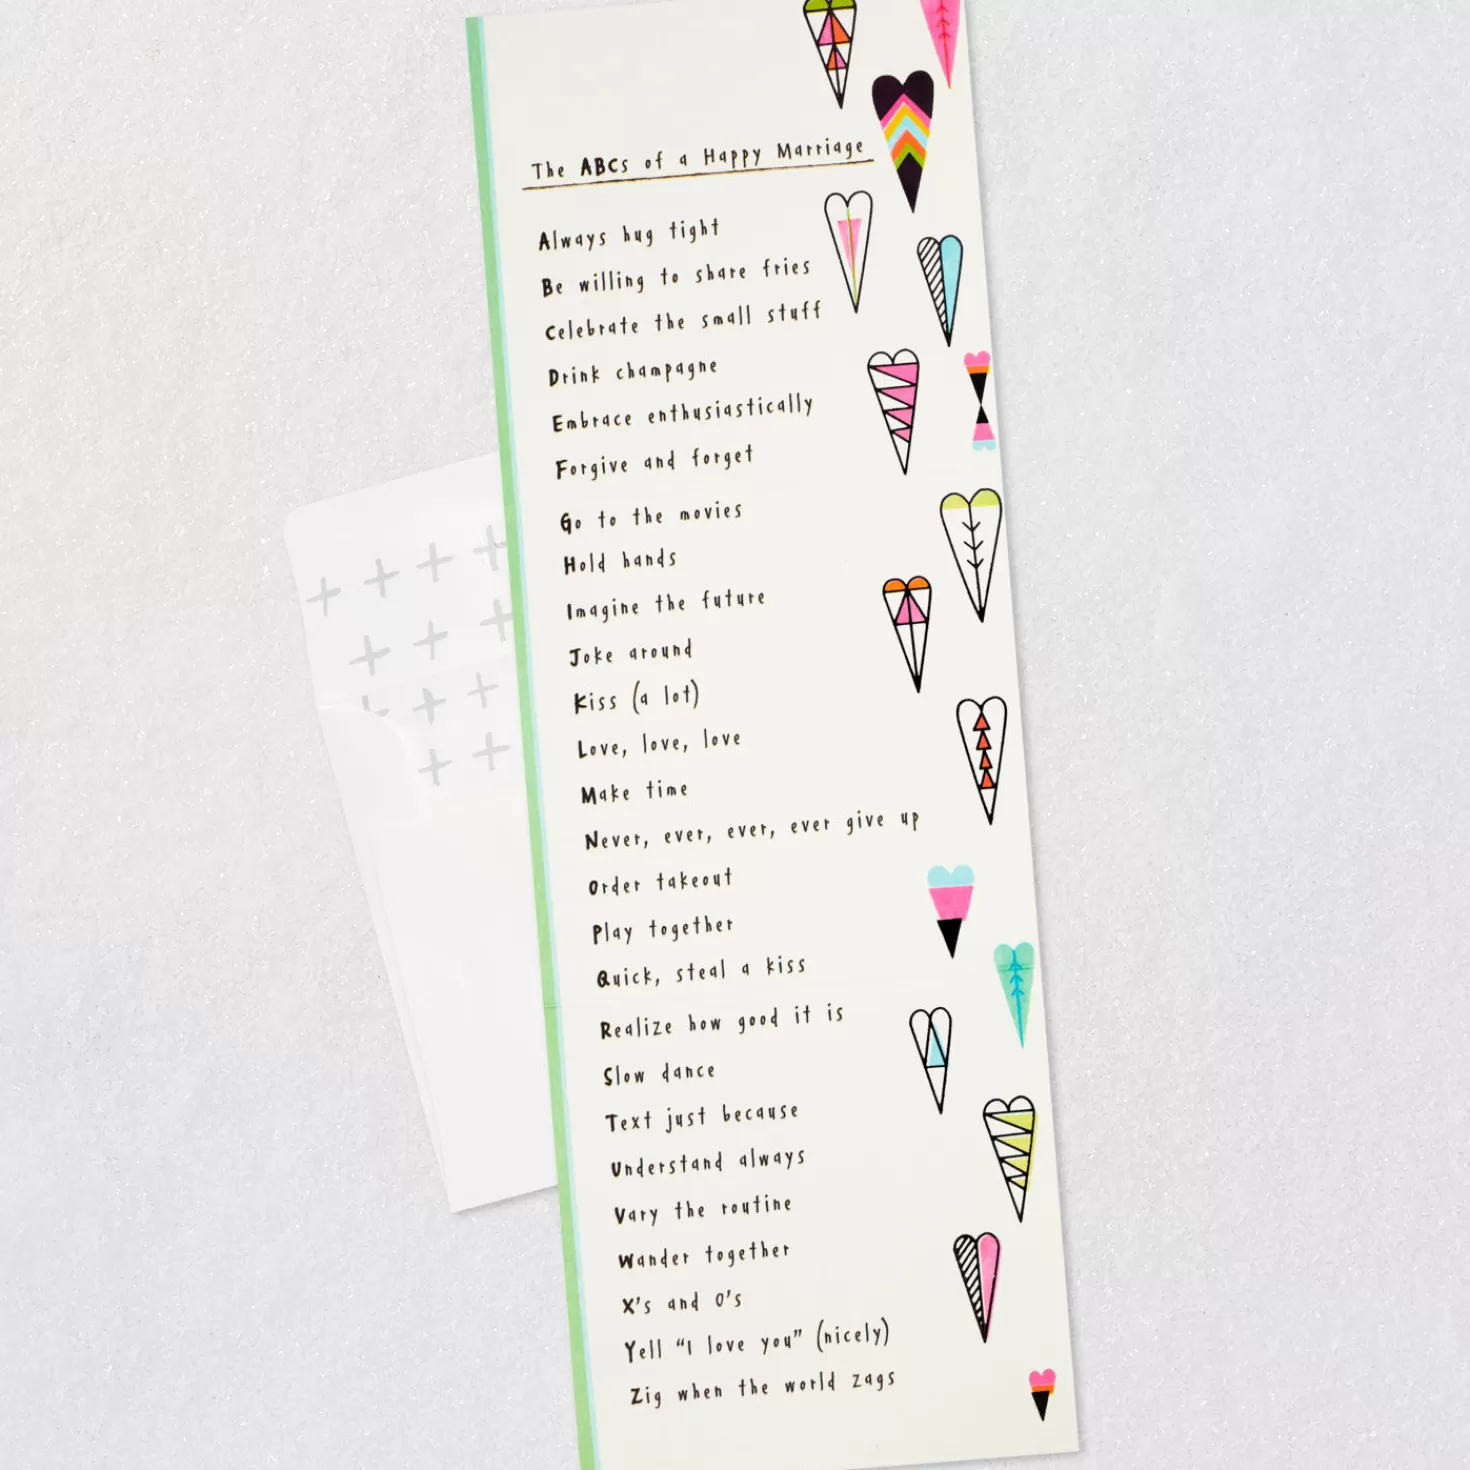 The ABCs of a Happy Marriage
Always hug tight
Be willing to share fries
Celebrate the small stuff
Drink champagne
Embrace enthusiastically
Forgive and forget
Go to the movies
Hold hands
Imagine the future
Joke around
Kiss (a lot)
Love, love, love
Make time
Never, ever, ever, ever give up
Order takeout
Play together
Quick, steal a kiss
Realize how good it is
Slow dance
Text just because
Understand always
Vary the routine
Wander together
X's and O's
Yell "I love you" (nicely)
Zig when the world zags